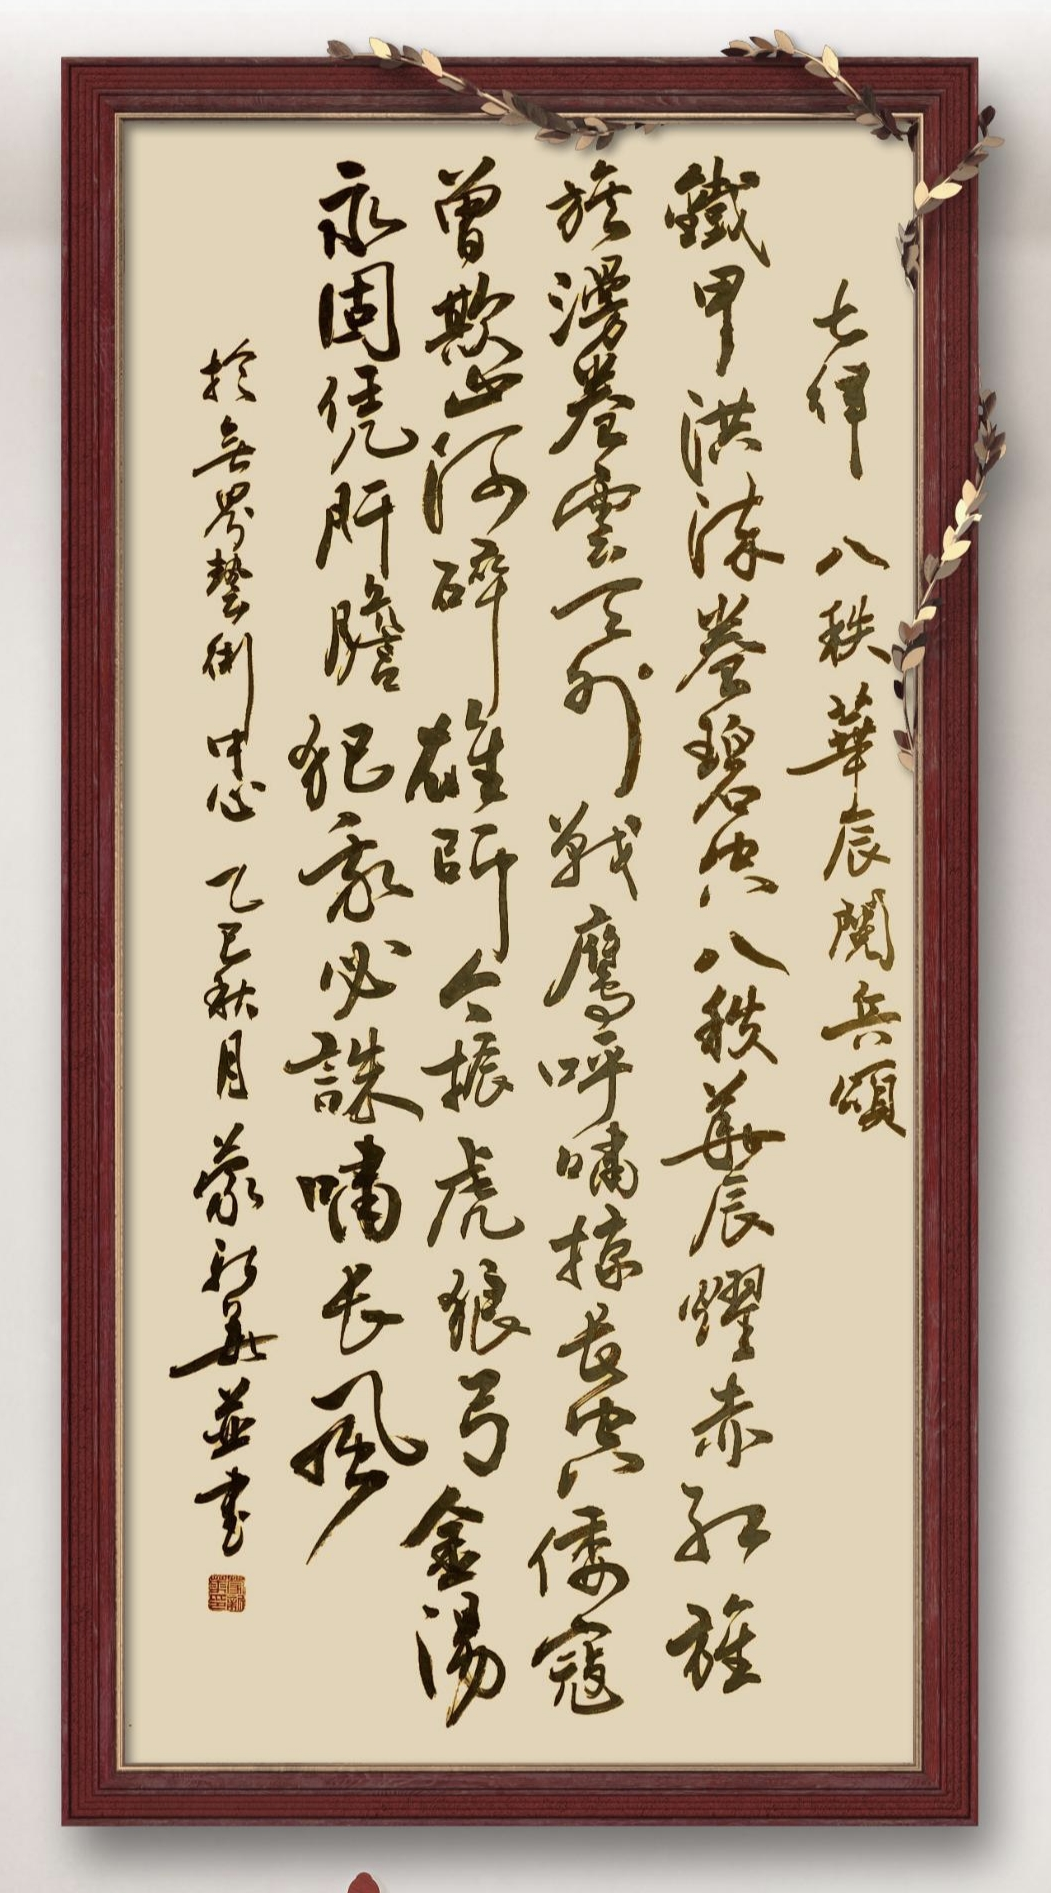 七律 八秩華辰閱兵頌
鐵甲洪涛卷碧空八秩華辰耀赤紅旌
旗漫卷雲天外戰鷹呼嘯掠長空倭寇
曾欺山河碎雄師今振虎狼弓金湯
永固凭肝膽犯我必誅嘯長風
於無界藝術中心 乙巳秋月 蒙新華並書